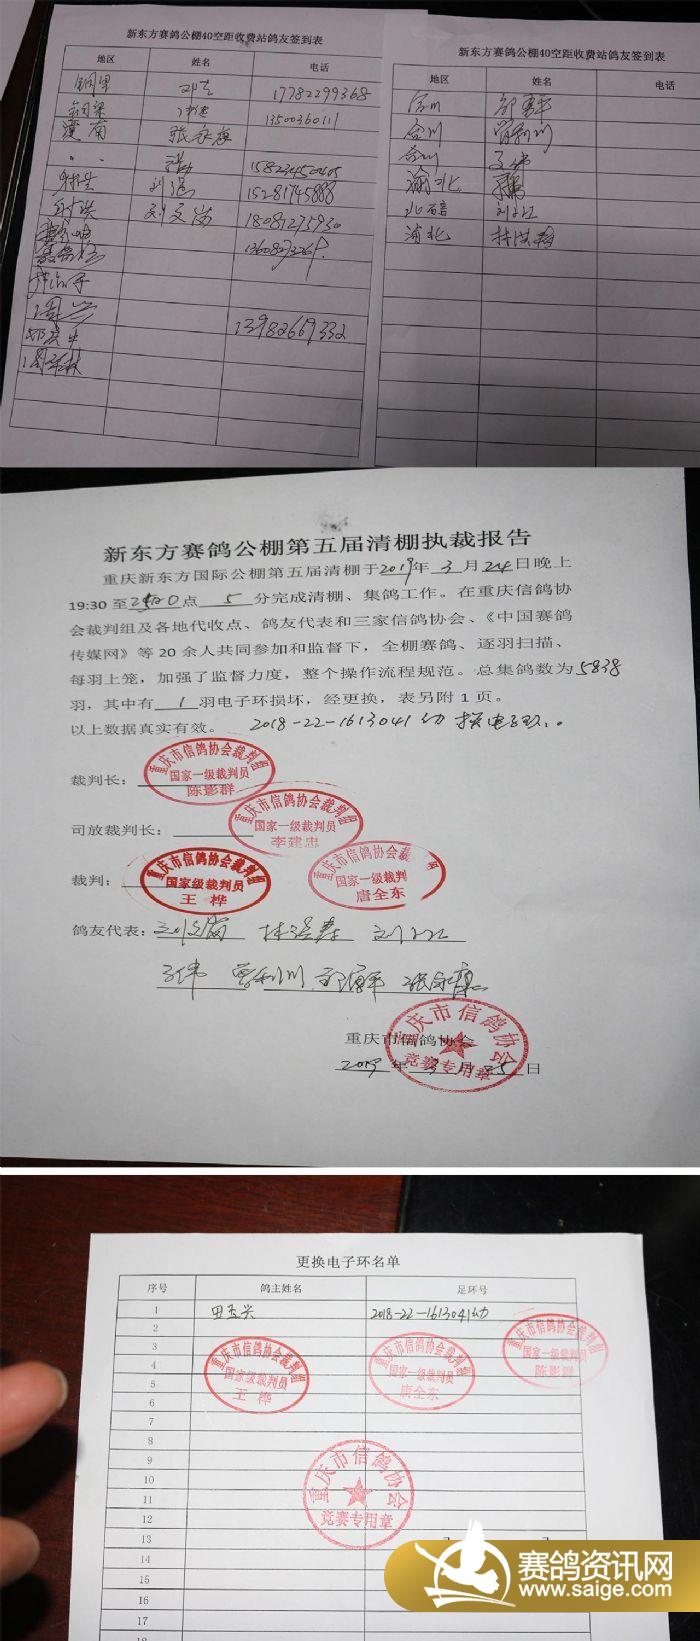 新东方赛鸽公棚40空距收费站鸽友签到表
地区 姓名 电话
铜梁 17782299368
铜梁 13500360111
潼南 张永
15823450405
射洪 刘 15281745888
射洪 刘文 18081275930
13608273268
周兴 13982669332
邓
周
新东方赛鸽公棚40空距收费站鸽友签到表
地区 姓名 电话
合川
合川 曾利川
合川 王伟
渝北
北碚 刘
渝北 林
新东方赛鸽公棚第五届清棚执裁报告
重庆新东方国际公棚第五届清棚于2019年3月24日晚上
19:30 至 点 5 分完成清棚、集鸽工作。在重庆信鸽协
会裁判组及各地代收点、鸽友代表和三家信鸽协会、《中国赛鸽
传媒网》等 20 余人共同参加和监督下，全棚赛鸽、逐羽扫描、
每羽上笼，加强了监督力度，整个操作流程规范。总集鸽数为5838
羽，其中有 1 羽电子环损坏，经更换，表另附 1 页。
以上数据真实有效。 2018-22-1613041幼 换电子环。
裁判长：
重庆市信鸽协会裁判组
国家一级裁判员
陈影群
司放裁判长：
重庆市信鸽协会裁判组
国家一级裁判员
李建忠
裁判：
重庆市信鸽协会裁判组
国家级裁判员
王 桦
重庆市信鸽协会裁判
国家一级裁判
唐全东
鸽友代表：刘文 林 刘
王伟 曾利川 张永
重庆市信鸽协会
2019 年 3 月 25 日
重庆市信鸽协会
竞赛专用章
更换电子环名单
序号 鸽主姓名 足环号
1 田孟兴 2018-22-1613041幼
2
3
4
5
6
7
8
9
10
11
12
13
14
15
16
17
18
重庆市信鸽协会裁判组
国家级裁判员
王 桦
重庆市信鸽协会裁判组
国家一级裁判员
唐全东
重庆市信鸽协会裁判组
国家一级裁判员
陈影群
重庆市信鸽协会
竞赛专用章
赛鸽资讯网
www.saige.com